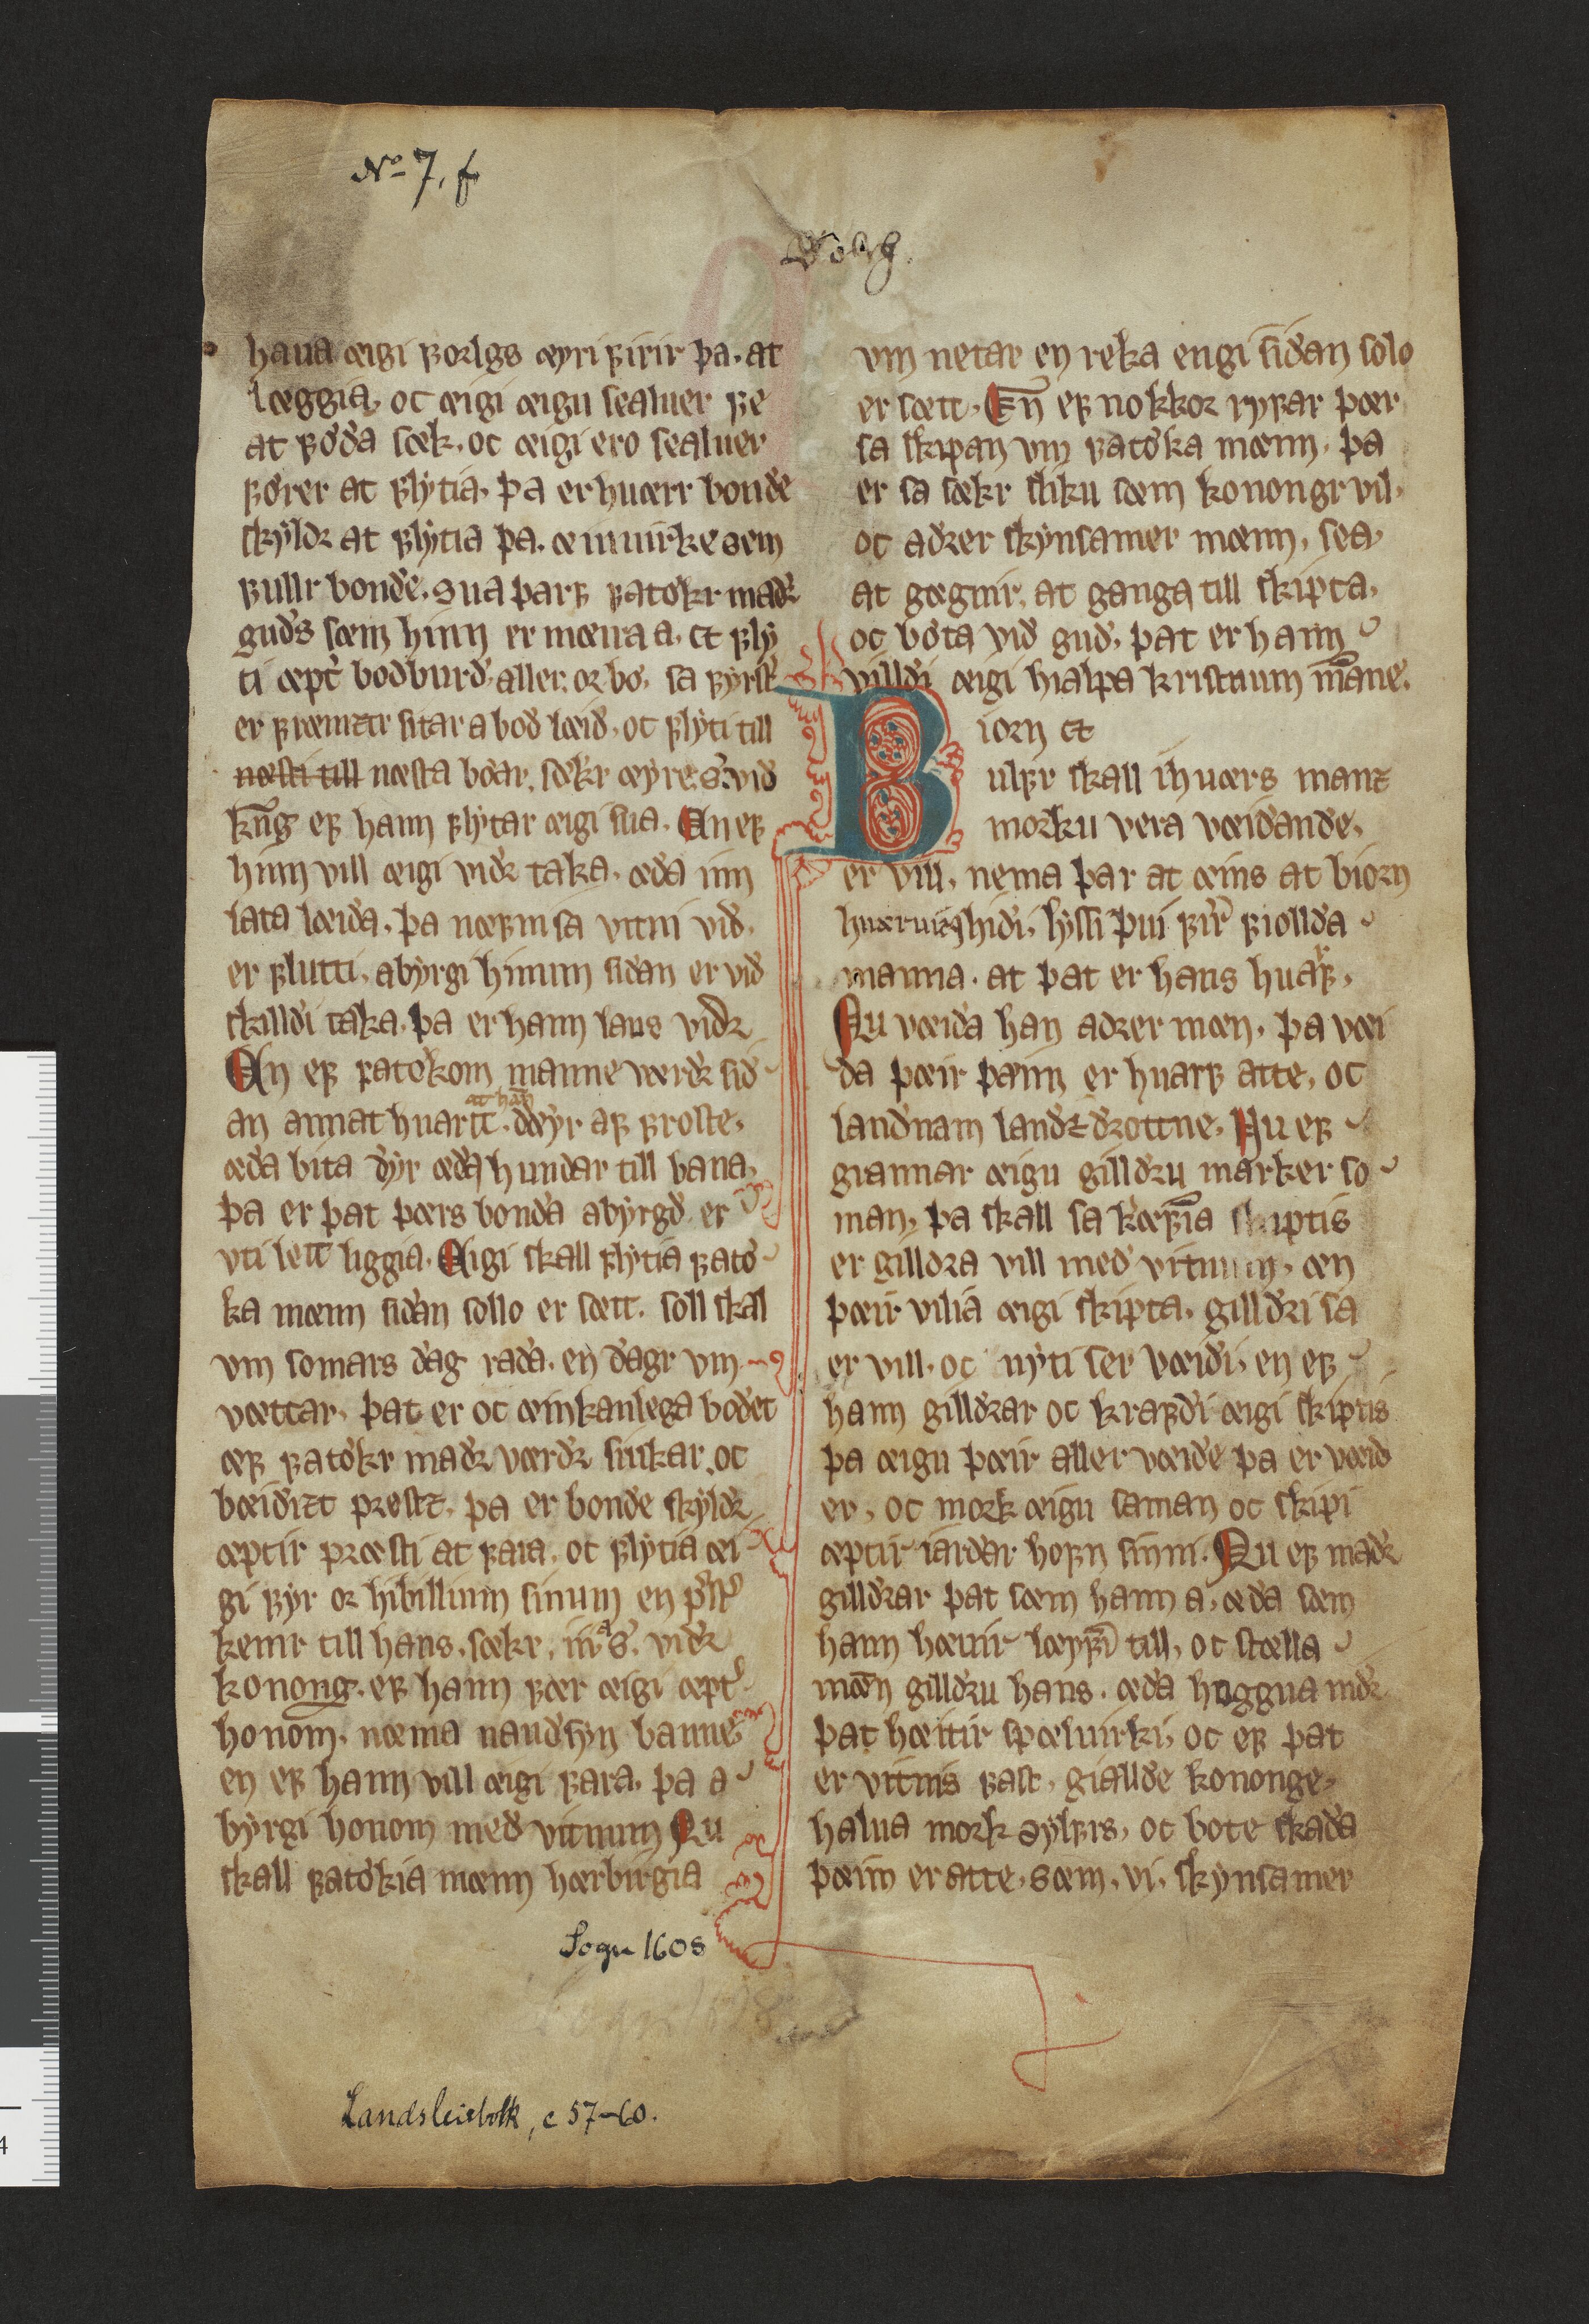 No 7, f
haua æigi forlgs œyri firir þa. at
læggia, oc æigi æigu sealuer fe
at føða sœk. oc æigi ero sealuer
fører at flytia, þa er huærr bonde
skyldr at flytia þa. æinuirke sem
fullr bonde. sua þarf fatøkr maðr
guðs sæm hinn er mæira a. ⁊ fly
ti æpt̃ boðburð. aller or bø, sa fyrst̃
er fræmztr sitar a boð læið, oc flyti till
næsti till næsta bøar, sækr œyre. s̃. við
kng̃ ef hann flytar æigi sua. Æn ef
hinn vill æigi viðr taka, æða inn
lata læiða, þa næfni sa vitni við,
er flutti, abyrgi hinum siðan er við
skilldi taka, þa er hann laus viðr
Æn ef fatøkom manne værðr sið
an annat huartt. at hañ dœyr af froste,
æða bita dyr æða hundar till bana,
þa er þat þærs bonda abyrgð er
vti lett liggia. Æigi skall flytia fatø
ka mænn siðan sollo er sætt. soll skal
vm somars dag raða. en dagr vm
vættar, þat er oc æinkanlega boðet
æf fatøkr maðr værðr siukar. oc
bæiðizt prestz, þa er bonde skyldr
æptir præsti at fara, oc flytia æi
gi fyr or hibillium sinum en p̃st̃
kemr till hans, sækr, iiia s̃. viðr
konong. ef hann fær æigi æpt̃
honom, næma nauðsyn banne
en ef hann vill æigi fara, þa a
byrgi honom með vitnum Nu
skall fatøkia mænn hærbirgia
vm netar en reka engi siðan solo
er sætt. En̄ ef nokkor ryfar þær
sa skipan vm fatøka mænn, þa
er sa sækr sliku sæm konongr vil,
oc aðrer skynsamer mænn, sea,
at gœgnir, at ganga till skipta,
oc bøta við guð, þat er hann
villdi æigi hialpa kristnum m̃ane.
Biorn ⁊
ulfr skall ihuærs manz
morku vera væiðande,
er vill, nema þar at æins at biorn
hidi, lysi þui fir̃ fiollda
manna. at þat er hans huarf,
Nu væiða han aðrer mæn, þa væi
ða þæir þann er huarf atte, oc
landnam landz drottne. Nu ef
grannar æigu gilldru marker so
man, þa skall sa kræfia skiptis
er gilldra vill með vitnum, æn
þæir vilia æigi skipta, gilldri sa
er vill. oc nyti ser væiði, en ef
hann gilldrar oc krafdi æigi skiptis
þa æigu þæir aller væiðe þa er væið
er, oc mork æigu saman oc skipi
æptir iarðar hofn sinni. Nu ef maðr
gilldrar þat sæm hann a, æða sæm
hann hæuir lœyfi till, oc stælla
mæn gilldru hans. æða huggua niðr
þat hæitir spæluirki, oc ef þat
er vitnis fast, giallde kononge,
halua mork sylfrs, oc bøte skaða
þæim er atte, sæm, vi, skynsamer
Sogn 1608
Landsleiebolk, c 57-60.